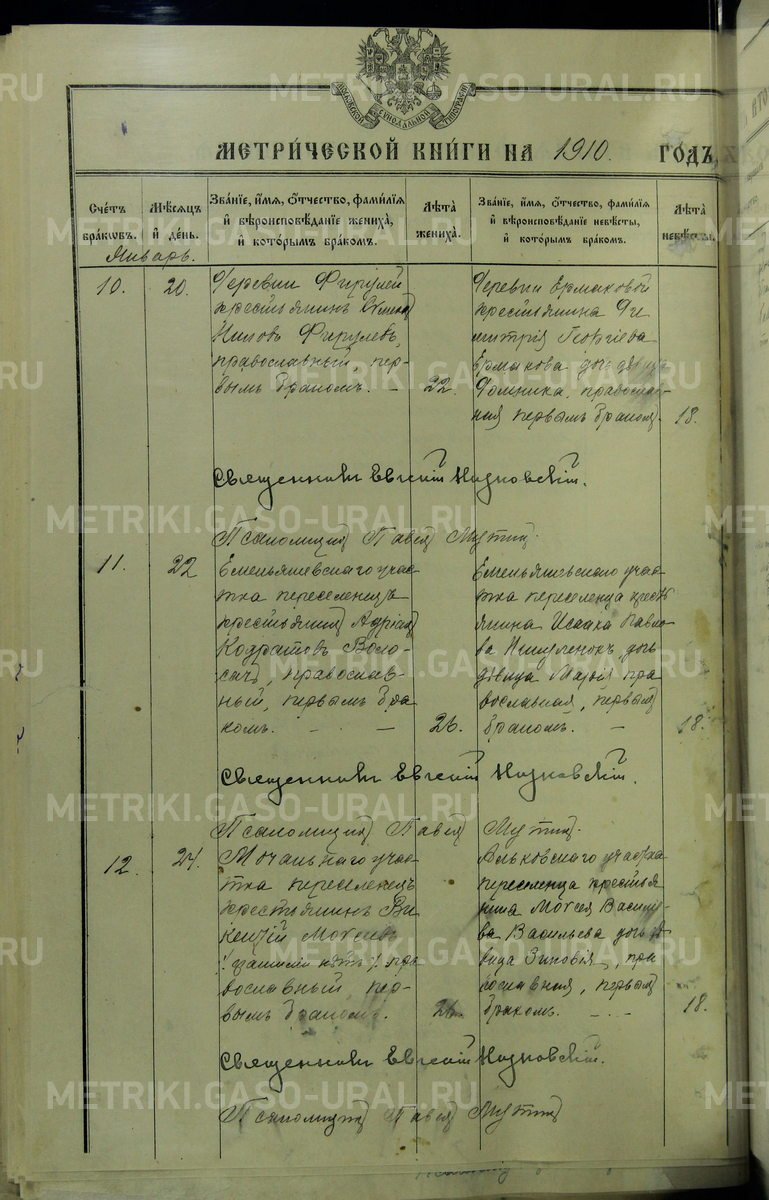 МЕТРИ́ЧЕСКОЙ КНИ́ГИ НА 1910. ГОДЪ,
Сче́тъ бра́ковъ.
Мѣ́сяцъ и҆ де́нь.
Зва́нїе, и҆́мѧ, ѻ҆́тчество, фами́лїѧ и҆ вѣроисповѣ́данїе жениха̀, и҆ кото́рымъ бра́комъ.
Лѣ́та жениха̀.
Зва́нїе, и҆́мѧ, ѻ҆́тчество, фами́лїѧ и҆ вѣроисповѣ́данїе невѣ́сты, и҆ кото́рымъ бра́комъ.
Лѣ́та невѣ́сты.
Январь.
10.
20.
Деревни
крестьянинъ
Ниловъ Фирулевъ,
православный, пер-
вымъ бракомъ. —
22.
Деревни Ермаковой
крестьянина Ди
митрія Георгіева
Ермакова дочь дѣвица
Домника, православ-
ная первымъ бракомъ.
18.
Священникъ Евгеній
Псаломщикъ Павелъ
11.
22
Емельяшевскаго учас-
тка переселенецъ
крестьянинъ Адріанъ
Кодратовъ Воло-
сачъ, православ-
ный, первымъ бра
комъ. — —
26.
Емельяшевскаго учас-
тка переселенца кресть
янина Исаака Павло-
ва дочь
дѣвица Марія пра
вославная, первымъ
бракомъ. —
18.
Священникъ Евгеній
Псаломщикъ Павелъ
12.
24.
учас-
тка переселенецъ
крестьянинъ Ви
кентій Моѵсеевъ
/фамиліи нѣтъ/ пра
вославный, пер-
вымъ бракомъ.
26.
участка
переселенца крестья
нина Моѵсея Василь-
ва Васильева дочь дѣ
вица Зиновія, пра
вославная, первымъ
бракомъ. — . —
18.
Священникъ Евгеній
Псаломщикъ Павелъ
METRIKI.GASO-URAL.RU